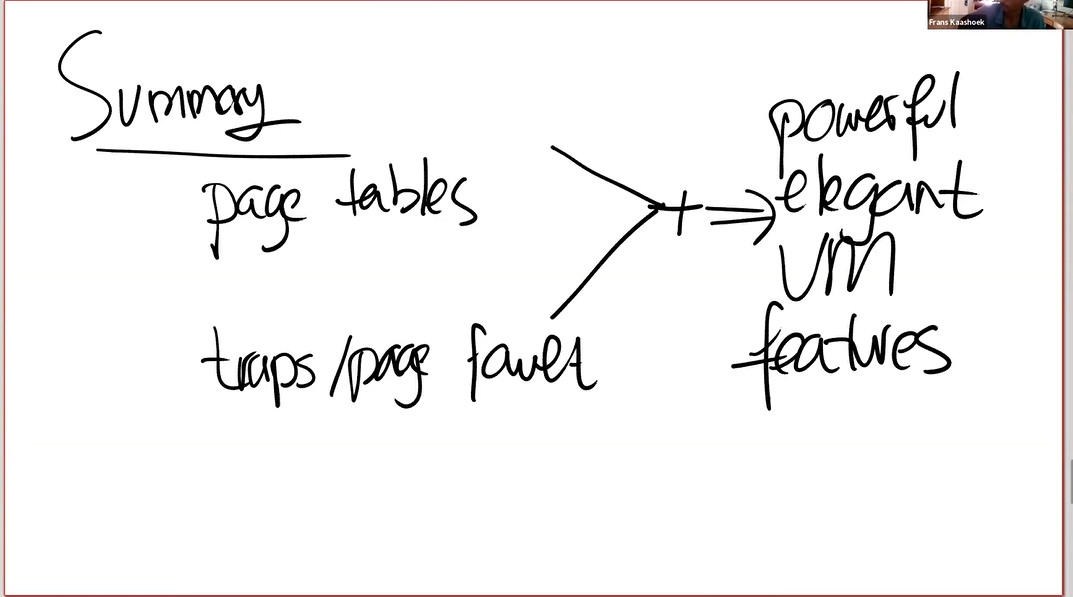 Frans Kaashoek
Summary
page tables
traps/page fault
+ ⇒
powerful
elegant
VM
features